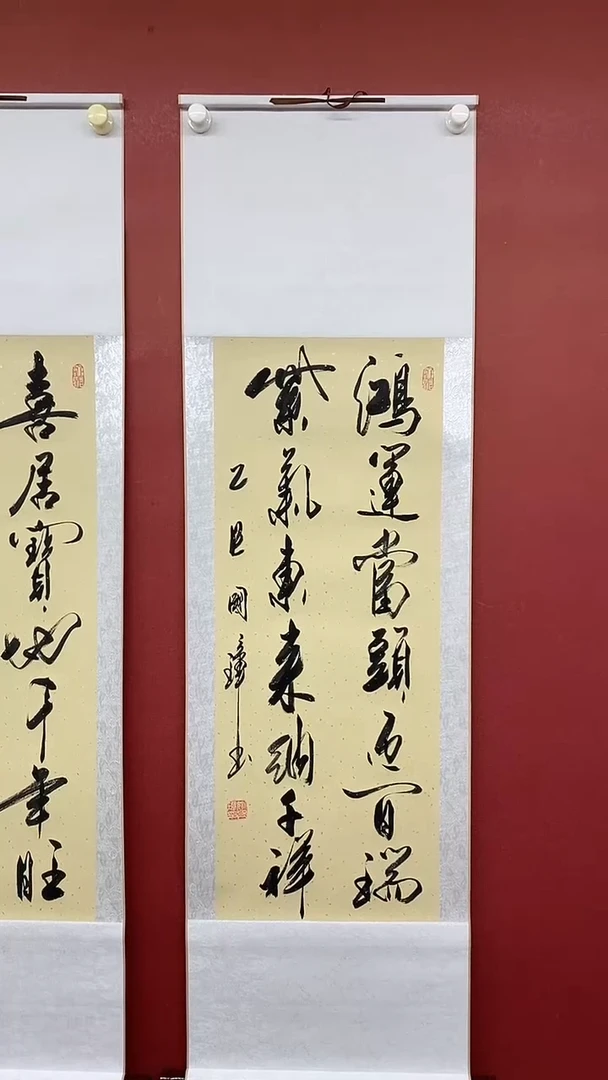 鴻運當頭迎百瑞
紫氣東來納千祥
乙巳國瑋書
喜居寶地千年旺